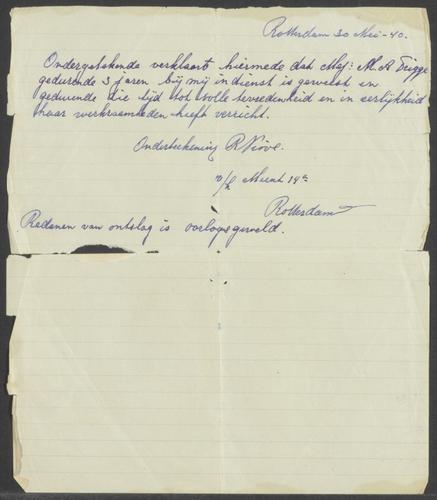 Rotterdam 30 Mei - 40.
Ondergetekende verklaart hiermede dat Mej: M. A
gedurende 3 jaren bij mij in dienst is geweest en
gedurende die tijd tot volle tevredenheid en in eerlijkheid
haar werkzaamheden heeft verricht.
Ondertekening R
v/h Meent 19
Rotterdam
Redenen van ontslag is oorlogsgeweld.